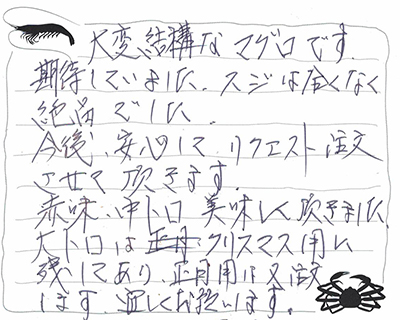 大変結構なマグロです.
期待していました.スジは全くなく
絶品でした.
今後、安心してリクエスト注文
させて頂きます.
赤味、中トロ美味しく頂きました.
大トロはクリスマス用に
残してあり、正月用は又注文
します、宜しくお願いします。